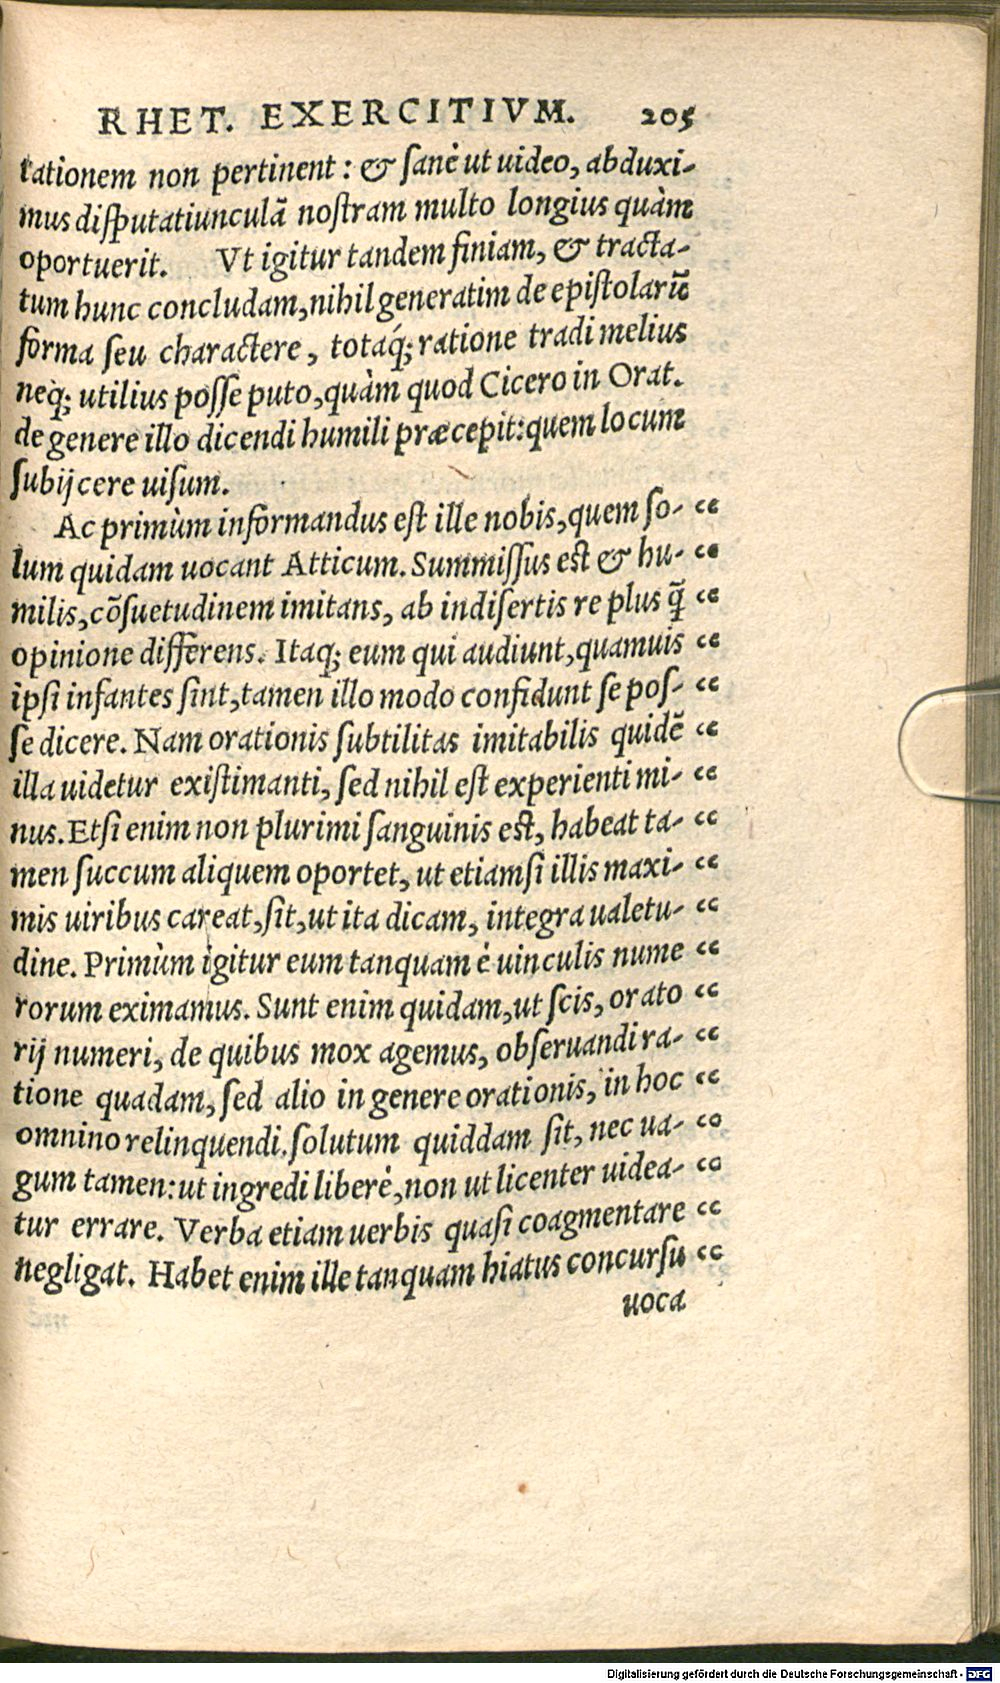 RHET. EXERCITIVM. 205
tationem non pertinent: & ſanè ut uideo, abduxi-
mus diſputatiunculā noſtram multo longius quàm
oportuerit. Vt igitur tandem finiam, & tracta-
tum hunc concludam, nihil generatim de epiſtolariū
forma ſeu charactere, totaq́; ratione tradi melius
neq; utilius poſſe puto, quàm quod Cicero in Orat.
de genere illo dicendi humili præcepit: quem locum
ſubijcere uiſum.
Ac primùm informandus eſt ille nobis, quem ſo- “
lum quidam uocant Atticum. Summiſſus eſt & hu- “
milis, cōſuetudinem imitans, ab indiſertis re plus q̃ “
opinione differens. Itaq; eum qui audiunt, quamuis “
ipſi infantes ſint, tamen illo modo confidunt ſe poſ- “
ſe dicere. Nam orationis ſubtilitas imitabilis quidē “
illa uidetur exiſtimanti, ſed nihil eſt experienti mi- “
nus. Etſi enim non plurimi ſanguinis eſt, habeat ta- “
men ſuccum aliquem oportet, ut etiamſi illis maxi- “
mis uiribus careat, ſit, ut ita dicam, integra ualetu- “
dine. Primùm igitur eum tanquam è uinculis nume “
rorum eximamus. Sunt enim quidam, ut ſcis, orato “
rij numeri, de quibus mox agemus, obſeruandi ra- “
tione quadam, ſed alio in genere orationis, in hoc “
omnino relinquendi. ſolutum quiddam ſit, nec ua- “
gum tamen: ut ingredi liberè, non ut licenter uidea- “
tur errare. Verba etiam uerbis quaſi coagmentare “
negligat. Habet enim ille tanquam hiatus concurſu “
uoca
Digitalisierung gefördert durch die Deutsche Forschungsgemeinschaft - DFG